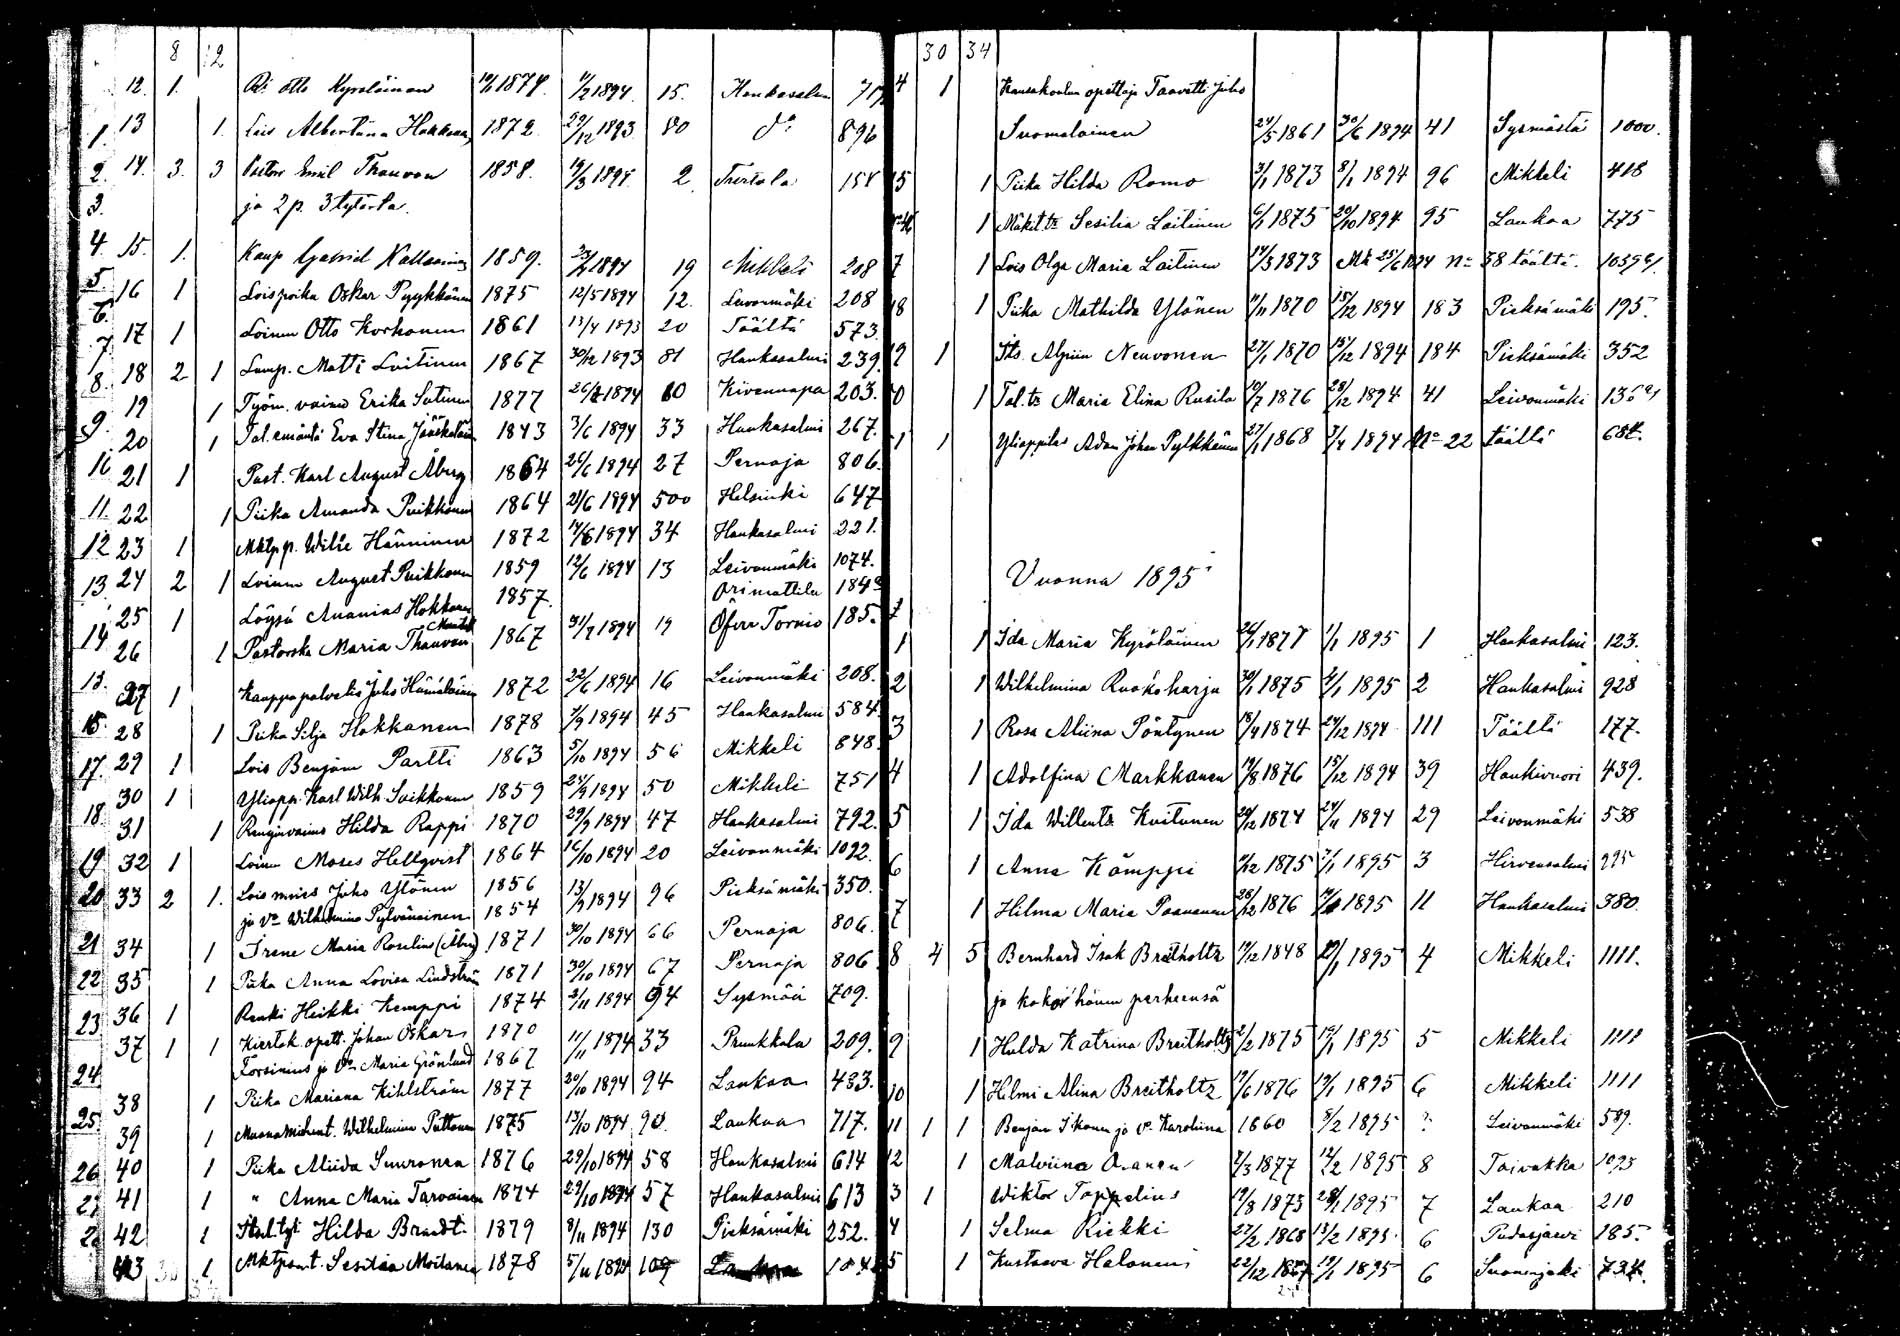 8 12
12. 1. Otto Kyröläinen 1874. 1894. 15. Hankasalmi
1. 13 1. Lois Albertiina Hokkanen 1872. 29/12 1893. 80 do 896
2. 14. 3. 3 Pastor Emil Thauvon 1858. 19/3 1894. 2. Turtola 154
3. ja 2 p. 3 tytärtä.
4. 15. 1. Kaup Gabriel Kallioinen 1859. 1894 19 Mikkeli 208
5 16 1 Loispoika Oskar Pyykkönen 1875 12/5 1894 12. Leivonmäki 208
6. 17 1 Loinen Otto Korhonen 1861 13/4 1893 20 Täältä 573
7 18 2 1 Lamp. Matti Laitinen 1867 30/12 1893 81 Hankasalmi 239.
8. 19 1 Työm. vaimo Erika Sutinen 1877 1894 10 Kivennapa 203.
9. 20 1 Tal. emäntä Eva Stina Jääskeläin 1843 3/6 1894 33 Hankasalmi 267.
10 21 1 Past. Karl August Åberg 1864 26/6 1894 27 Pernaja 806
11. 22 1 Piika Amanda Puikkonen 1864 21/6 1894 500 Helsinki 647
12 23 1 Mktp p. Wille Hänninen 1872 14/6 1894 34 Hankasalmi 221.
13 24 2 1 Loinen August Puikkonen 1859 12/6 1894 13 Leivonmäki 1074.
25 1 Löysä Ananias Hokkanen 1857. Orimattila 184
14 26 1 Pastorska Maria Thauvon 1867 31/7 1894 19 Öfver Tornio 185.
15. 27 1 Kauppapalvelia Juho Hämäläinen 1872 22/6 1894 16 Leivonmäki 208.
28 1 Piika Silja Hokkanen 1878 7/9 1894 45 Hankasalmi 584
17. 29 1 Lois Benjam Partti 1863 5/10 1894 56 Mikkeli 848.
30 1 Yliopp. Karl Wilh. Soikkonen 1859 24/9 1894 50 Mikkeli 751
18. 31 1 Renginvaimo Hilda Rappi 1870 29/9 1894 47 Hankasalmi 792.
19 32 1 Loinen Moses Hellqvist 1864 16/10 1894 20 Leivonmäki 1092.
20 33 2 1. Lois mies Juho Ylönen 1856 13/9 1894 96 Pieksämäki 350.
ja vo Wilhelmiina Pylvänäinen 1854
21 34 1 Irene Maria Roselius (Åberg) 1871 30/10 1894 66 Pernaja 806.
22 35 1 Piika Anna Lovisa Lindström 1871 30/10 1894 67 Pernaja 806
23 36 1 Renki Heikki Kemppi 1874 2/11 1894 94 Sysmää 709.
37 1 1 Kiertok. opett. Johan Oskar 1870 11/11 1894 33 Prunkkala 209.
24 Forsinius ja vo Maria Grönlund 1867
38 1 Piika Mariana Kihlström 1877 20/10 1894 94 Laukaa 433.
25. 39 1 Wilhelmiina Puttonen 1875 13/10 1894 90 Laukaa 717.
26 40 1 Piika Aliida Suuronen 1876 29/10 1894 58 Hankasalmi 614
27 41 1 " Anna Maria Tarvainen 1874 29/10 1894 57 Hankasalmi 613
42 1 Hilda Brandt 1879 8/11 1894 130 Pieksämäki 252.
43 1 Sesilia Moilanen 1878 5/11 1894 109
30 34
4 1 Kansakoulun opettaja Taavetti Juho
Suomalainen 24/5 1861 30/6 1894 41 Sysmästä 1000.
5 1 Piika Hilda Romo 3/1 1873 8/1 1894 96 Mikkeli 418
1 Mäkit. tr. Sesilia Laitinen 6/1 1875 20/10 1894 95 Laukaa 775
7 1 Lois Olga Maria Laitinen 14/3 1873 25/6 1894 No 38 täältä. 1039
18 1 Piika Mathilda Ylönen 11/11 1870 15/12 1894 183 Pieksämäki 195.
9 1 Alpiin Neuvonen 27/1 1870 15/12 1894 184 Pieksämäki 352
0 1 Tal. tr. Maria Elina Rusila 10/7 1876 28/12 1894 41 Leivonmäki
1 1 Ylioppilas Adam Johan Pylkkänen 27/1 1868 1894 No 22 täältä 684.
Vuonna 1895
1 1 Ida Maria Kyröläinen 1877 1/1 1895 1 Hankasalmi 123.
2 1 Wilhelmina Ruokoharju 30/1 1875 1895 2 Hankasalmi 928
3 1 Rosa Aliina Pöntynen 18/4 1874 24/12 1894 111 Täältä 177.
4 1 Adolfina Markkanen 14/8 1876 15/12 1894 39 Haukivuori 439.
5 1 Ida Willents. Kuitunen 20/12 1874 24/11 1894 29 Leivonmäki 538
6 1 Anna Kämppi 1875 1895 3 Hirvensalmi 995
7 1 Hilma Maria Paananen 28/12 1876 1895 11 Hankasalmi 380.
8 4 5 Bernhard Isak Breitholtz 19/12 1848 1895 4 Mikkeli 1111.
ja koko hänen perheensä
9 1 Hulda Katrina Breitholtz 2/2 1875 19/1 1895 5 Mikkeli 1111
10 1 Helmi Alina Breitholtz 19/6 1876 19/1 1895 6 Mikkeli 1111
11 1 1 Benjam Ikonen ja vo Karoliina 1660 8/2 1895 ? Leivonmäki 589.
12 1 Malviina 7/3 1877 14/2 1895 8 Toivakka 1093
3 1 Wiktor Toppelius 19/8 1873 28/1 1895 7 Laukaa 210
4 1 Selma Riekki 27/2 1868 13/2 1895. 6 Pudasjärvi 185.
5 1 Kustaava Halonen 22/12 1867 19/1 1895 6 Suonenjoki 734.